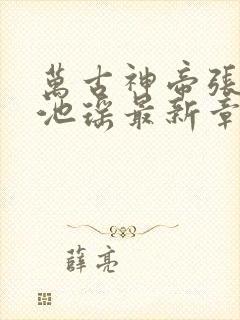 萬古神帝張
池瑤最新章
薛亮